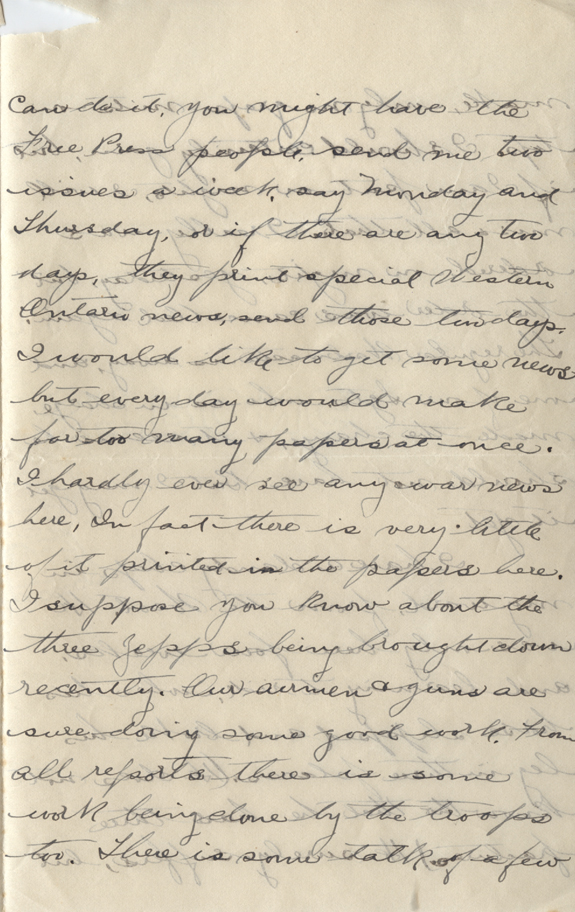 can do it, you might have the
Free Press people, send me two
issues a week, say Monday and
Thursday, or if there are any two
days, they print special Western
Ontario news, send those two days.
I would like to get some news
but every day would make
far too many papers at once.
I hardly ever see any war news
here, In fact there is very little
of it printed in the papers here.
I suppose you know about the
three Zepps being brought down
recently. Our airmen & guns are
sure doing some good work. From
all reports there is some
work being done by the troops
too. There is some talk of a few